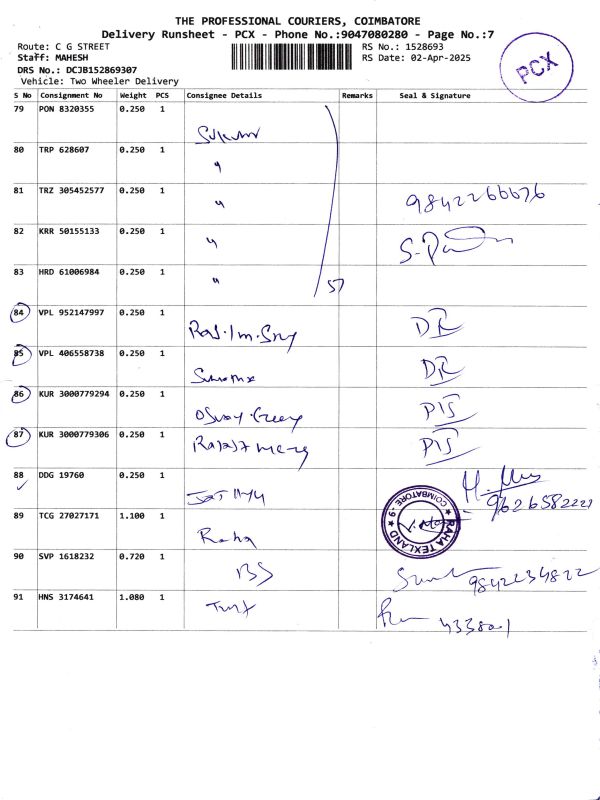 THE PROFESSIONAL COURIERS, COIMBATORE
Delivery Runsheet - PCX - Phone No.:9047080280 - Page No.:7
Route: C G STREET
RS No.: 1528693
Staff: MAHESH
RS Date: 02-Apr-2025
DRS No.: DCJB152869307
Vehicle: Two Wheeler Delivery
PCX
S No Consignment No Weight PCS Consignee Details Remarks Seal & Signature
79 PON 8320355 0.250 1
80 TRP 628607 0.250 1 "
81 TRZ 305452577 0.250 1 "
9842266676
82 KRR 50155133 0.250 1 "
83 HRD 61006984 0.250 1 "
57
84 VPL 952147997 0.250 1
DR
85 VPL 406558738 0.250 1
DR
86 KUR 3000779294 0.250 1
PIS
87 KUR 3000779306 0.250 1
PIS
88 DDG 19760 0.250 1
9626582221
89 TCG 27027171 1.100 1
Raha
RAHA TEXLAND
COIMBATORE - 9
90 SVP 1618232 0.720 1
BS
9842234822
91 HNS 3174641 1.080 1